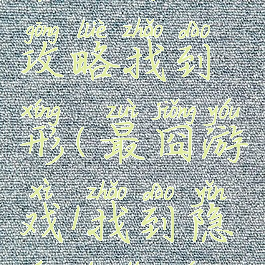 gōng lüè zhǎo dào
攻略找到
xíng zuì jiǒng yóu
形(最囧游
xì zhǎo dào yǐn
戏1找到隐